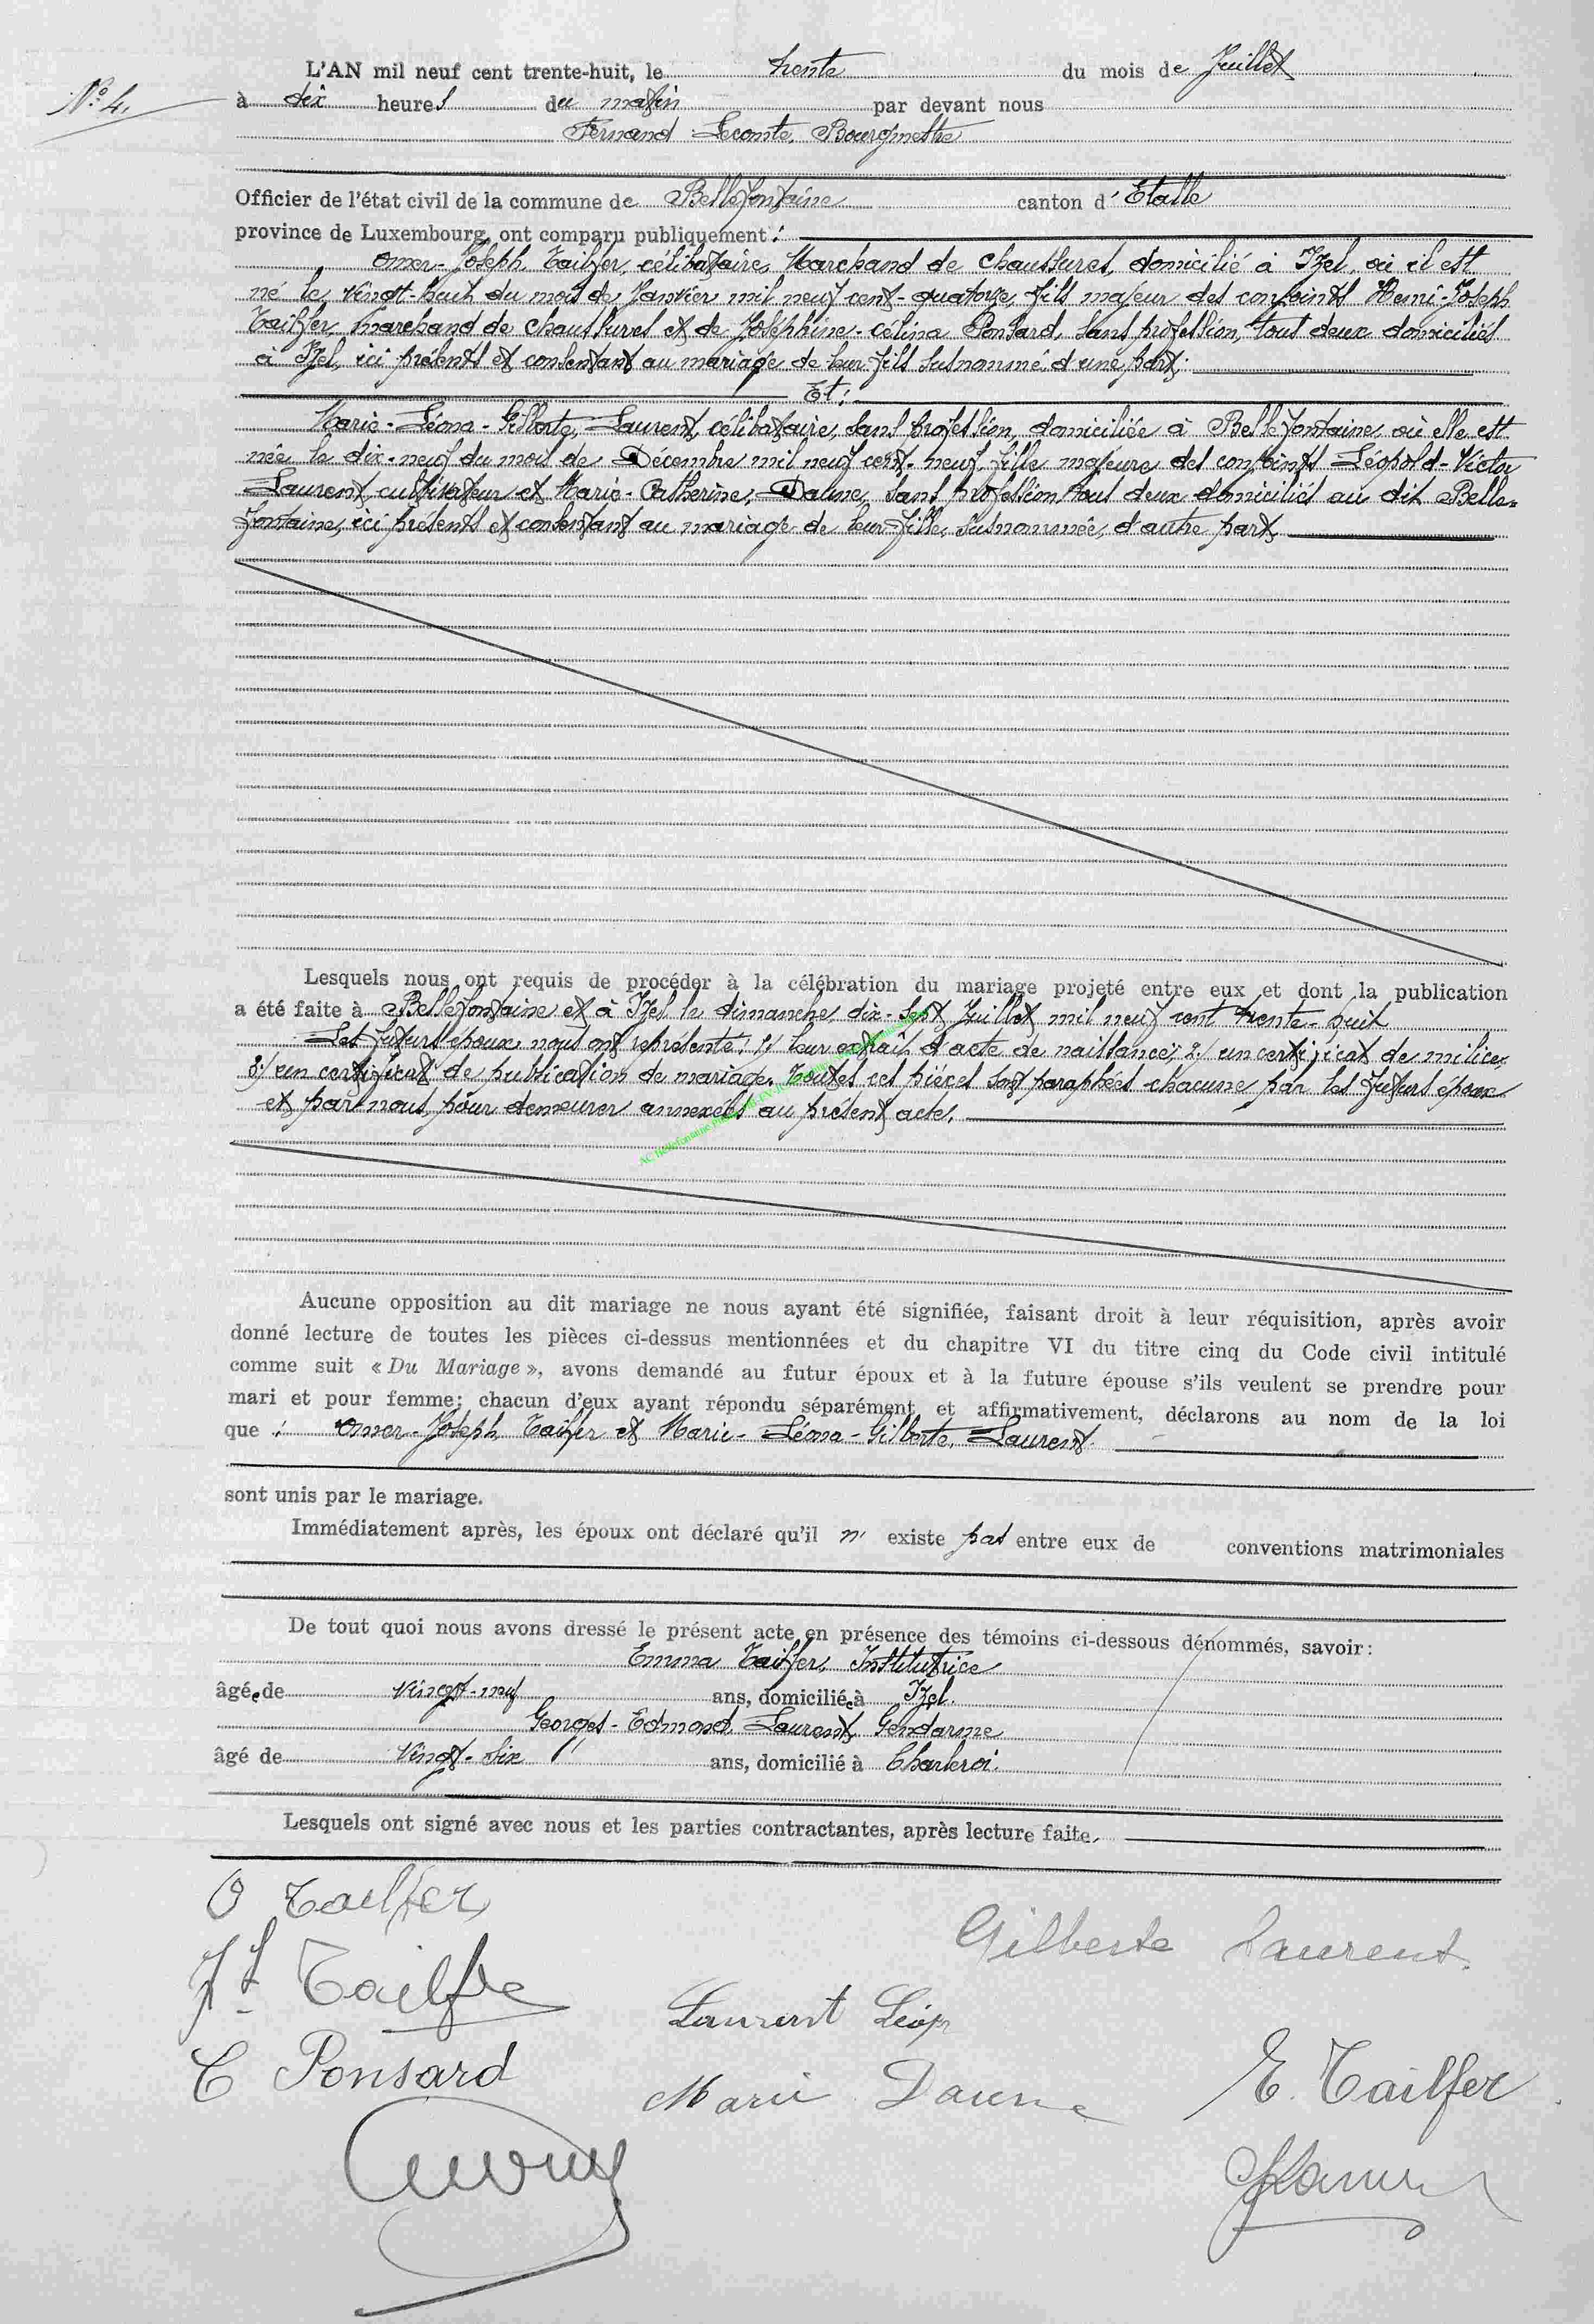 N° 4.
L'AN mil neuf cent trente-huit, le trente du mois de Juillet
à dix heures du matin par devant nous
Fernand Lecomte, Bourgmestre
Officier de l'état civil de la commune de Bellefontaine canton d'Etalle
province de Luxembourg, ont comparu publiquement :
Omer-Joseph Tailfer, célibataire, Marchand de chaussures, domicilié à Izel, où il est
né le vingt-huit du mois de Janvier mil neuf cent-quatorze, fils majeur des conjoints Henri-Joseph
Tailfer, marchand de chaussures et de Joséphine-Célina Ponsard, sans profession, tous deux domiciliés
à Izel, ici présents et consentant au mariage de leur fils susnommé d'une part;
Et :
Marie-Léona-Gilberte, Laurent, célibataire, sans profession, domiciliée à Bellefontaine, où elle est
née le dix-neuf du mois de Décembre mil neuf cent-neuf, fille majeure des conjoints Léopold-Victor
Laurent, cultivateur et Marie-Catherine, Daune, sans profession tous deux domiciliés au dit Belle-
fontaine, ici présents et consentant au mariage de leur fille, susnommée, d'autre part.
Lesquels nous ont requis de procéder à la célébration du mariage projeté entre eux et dont la publication
a été faite à Bellefontaine et à Izel le dimanche, dix-sept Juillet mil neuf cent trente-huit
Les futurs époux nous ont représenté: 1/ leur extrait d'acte de naissance; 2/ un certificat de milice;
3/ un certificat de publication de mariage. Toutes ces pièces sont paraphées chacune par les futurs époux
et par nous, pour demeurer annexées au présent acte.
AC Bellefontaine
Aucune opposition au dit mariage ne nous ayant été signifiée, faisant droit à leur réquisition, après avoir
donné lecture de toutes les pièces ci-dessus mentionnées et du chapitre VI du titre cinq du Code civil intitulé
comme suit « Du Mariage », avons demandé au futur époux et à la future épouse s'ils veulent se prendre pour
mari et pour femme; chacun d'eux ayant répondu séparément et affirmativement, déclarons au nom de la loi
que : Omer-Joseph Tailfer et Marie-Léona-Gilberte, Laurent.
sont unis par le mariage.
Immédiatement après, les époux ont déclaré qu'il n' existe pas entre eux de conventions matrimoniales
De tout quoi nous avons dressé le présent acte en présence des témoins ci-dessous dénommés, savoir:
Emma Tailfer, Institutrice
âgée de vingt-neuf ans, domiciliée à Izel.
Georges-Edmond, Laurent, Gendarme
âgé de vingt-six ans, domicilié à Charleroi.
Lesquels ont signé avec nous et les parties contractantes, après lecture faite.
O Tailfer
Gilberte Laurent.
Tailfer
Laurent Léop
C Ponsard
Marie Daune
E. Tailfer